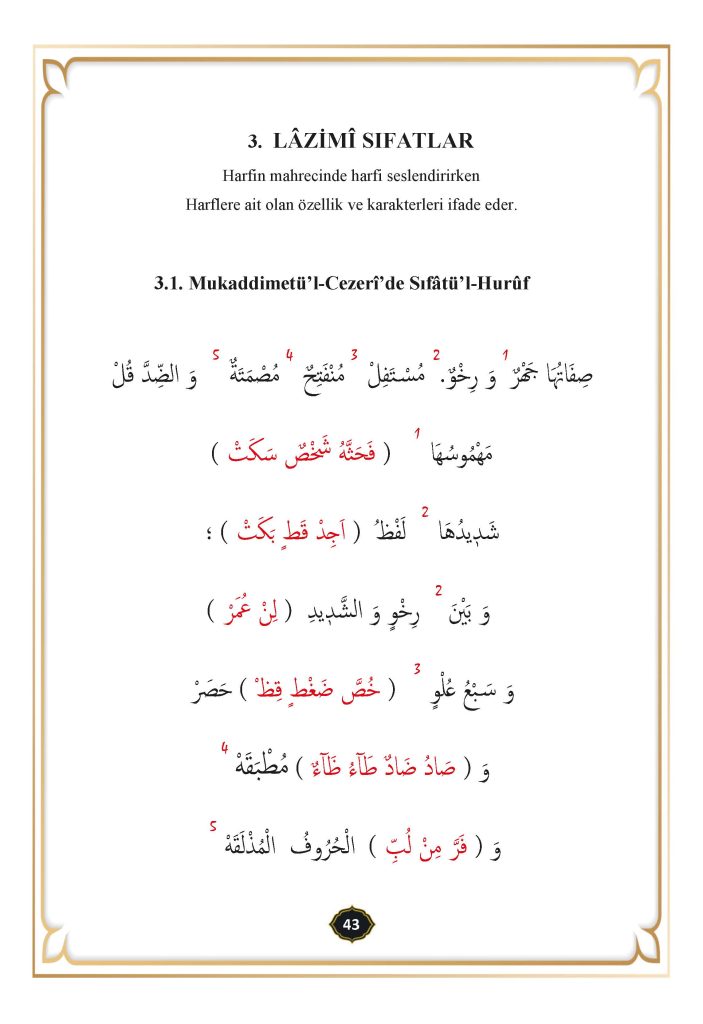 3. LÂZİMÎ SIFATLAR
Harfin mahrecinde harfi seslendirirken
Harflere ait olan özellik ve karakterleri ifade eder.
3.1. Mukaddimetü’l-Cezerî’de Sıfâtü’l-Hurûf
صِفَاتُهَا جَهْرٌ 1 وَ رِخْوٌ. 2 مُسْتَفِلْ 3 مُنْفَتِحٌ 4 مُصْمَتَةٌ 5 وَ الضِّدَّ قُلْ
مَهْمُوسُهَا 1 ( فَحَثَّهُ شَخْصٌ سَكَتْ )
شَدٖيدُهَا 2 لَفْظُ ( اَجِدْ قَطٍ بَكَتْ ) ؛
وَ بَيْنَ 2 رِخْوٍ وَ الشَّدٖيدِ ( لِنْ عُمَرْ )
وَ سَبْعُ عُلْوٍ 3 ( خُصَّ ضَغْطٍ قِظْ ) حَصَرْ
وَ ( صَادُ ضَادٌ طَآءُ ظَآءٌ ) مُطْبَقَهْ 4
وَ ( فَرَّ مِنْ لُبِّ ) الْحُرُوفُ الْمُذْلَقَهْ 5
43